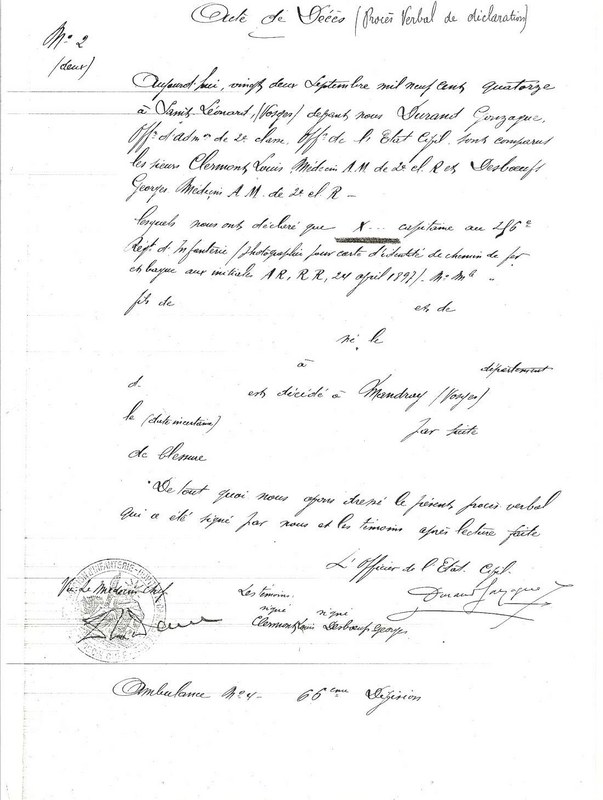 Acte de Décès (Procès Verbal de déclaration)
No 2
(deux)
Aujourd'hui, vingt deux Septembre mil neuf cent quatorze
à Saint-Léonard (Vosges) devant nous Durand Gonzague,
Offr d'admon de 2e classe, Offr de l'Etat Civil, sont comparus
les sieurs Clermont Louis Médecin A.M. de 2e cl R et Desboeufs
Georges Médecin A.M. de 2e cl R -
lesquels nous ont déclaré que X... capitaine au
Regt d'Infanterie (photographie pour carte d'identité de chemin de fer
et bague aux initiales A R, R R, 24 april 1897).
fils de et de
né le
à département
d est décédé à Mandray (Vosges)
le (date incertaine) par suite
de blessure
De tout quoi nous avons dressé le présent procès verbal
qui a été signé par nous et les témoins après lecture faite
L'Officier de l'Etat Civil.
Durand Gonzague
Vu, Le Médecin Chef
Les témoins
signé signé
Clermont Louis Desboeufs Georges
Ambulance No 4 - 66eme Division